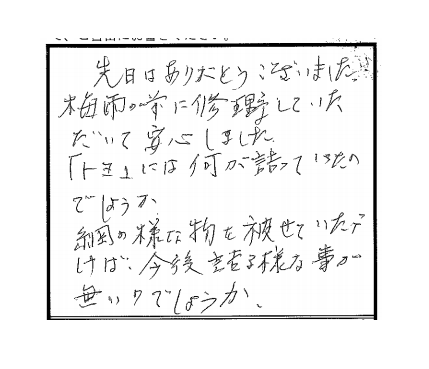 先日はありがとうございました。
梅雨の前に修理等していた
だいて安心しました。
「トヨ」には何が詰っていたの
でしょうか
網の様な物を被せていただ
けば、今後詰る様な事が
無いのでしょうか、